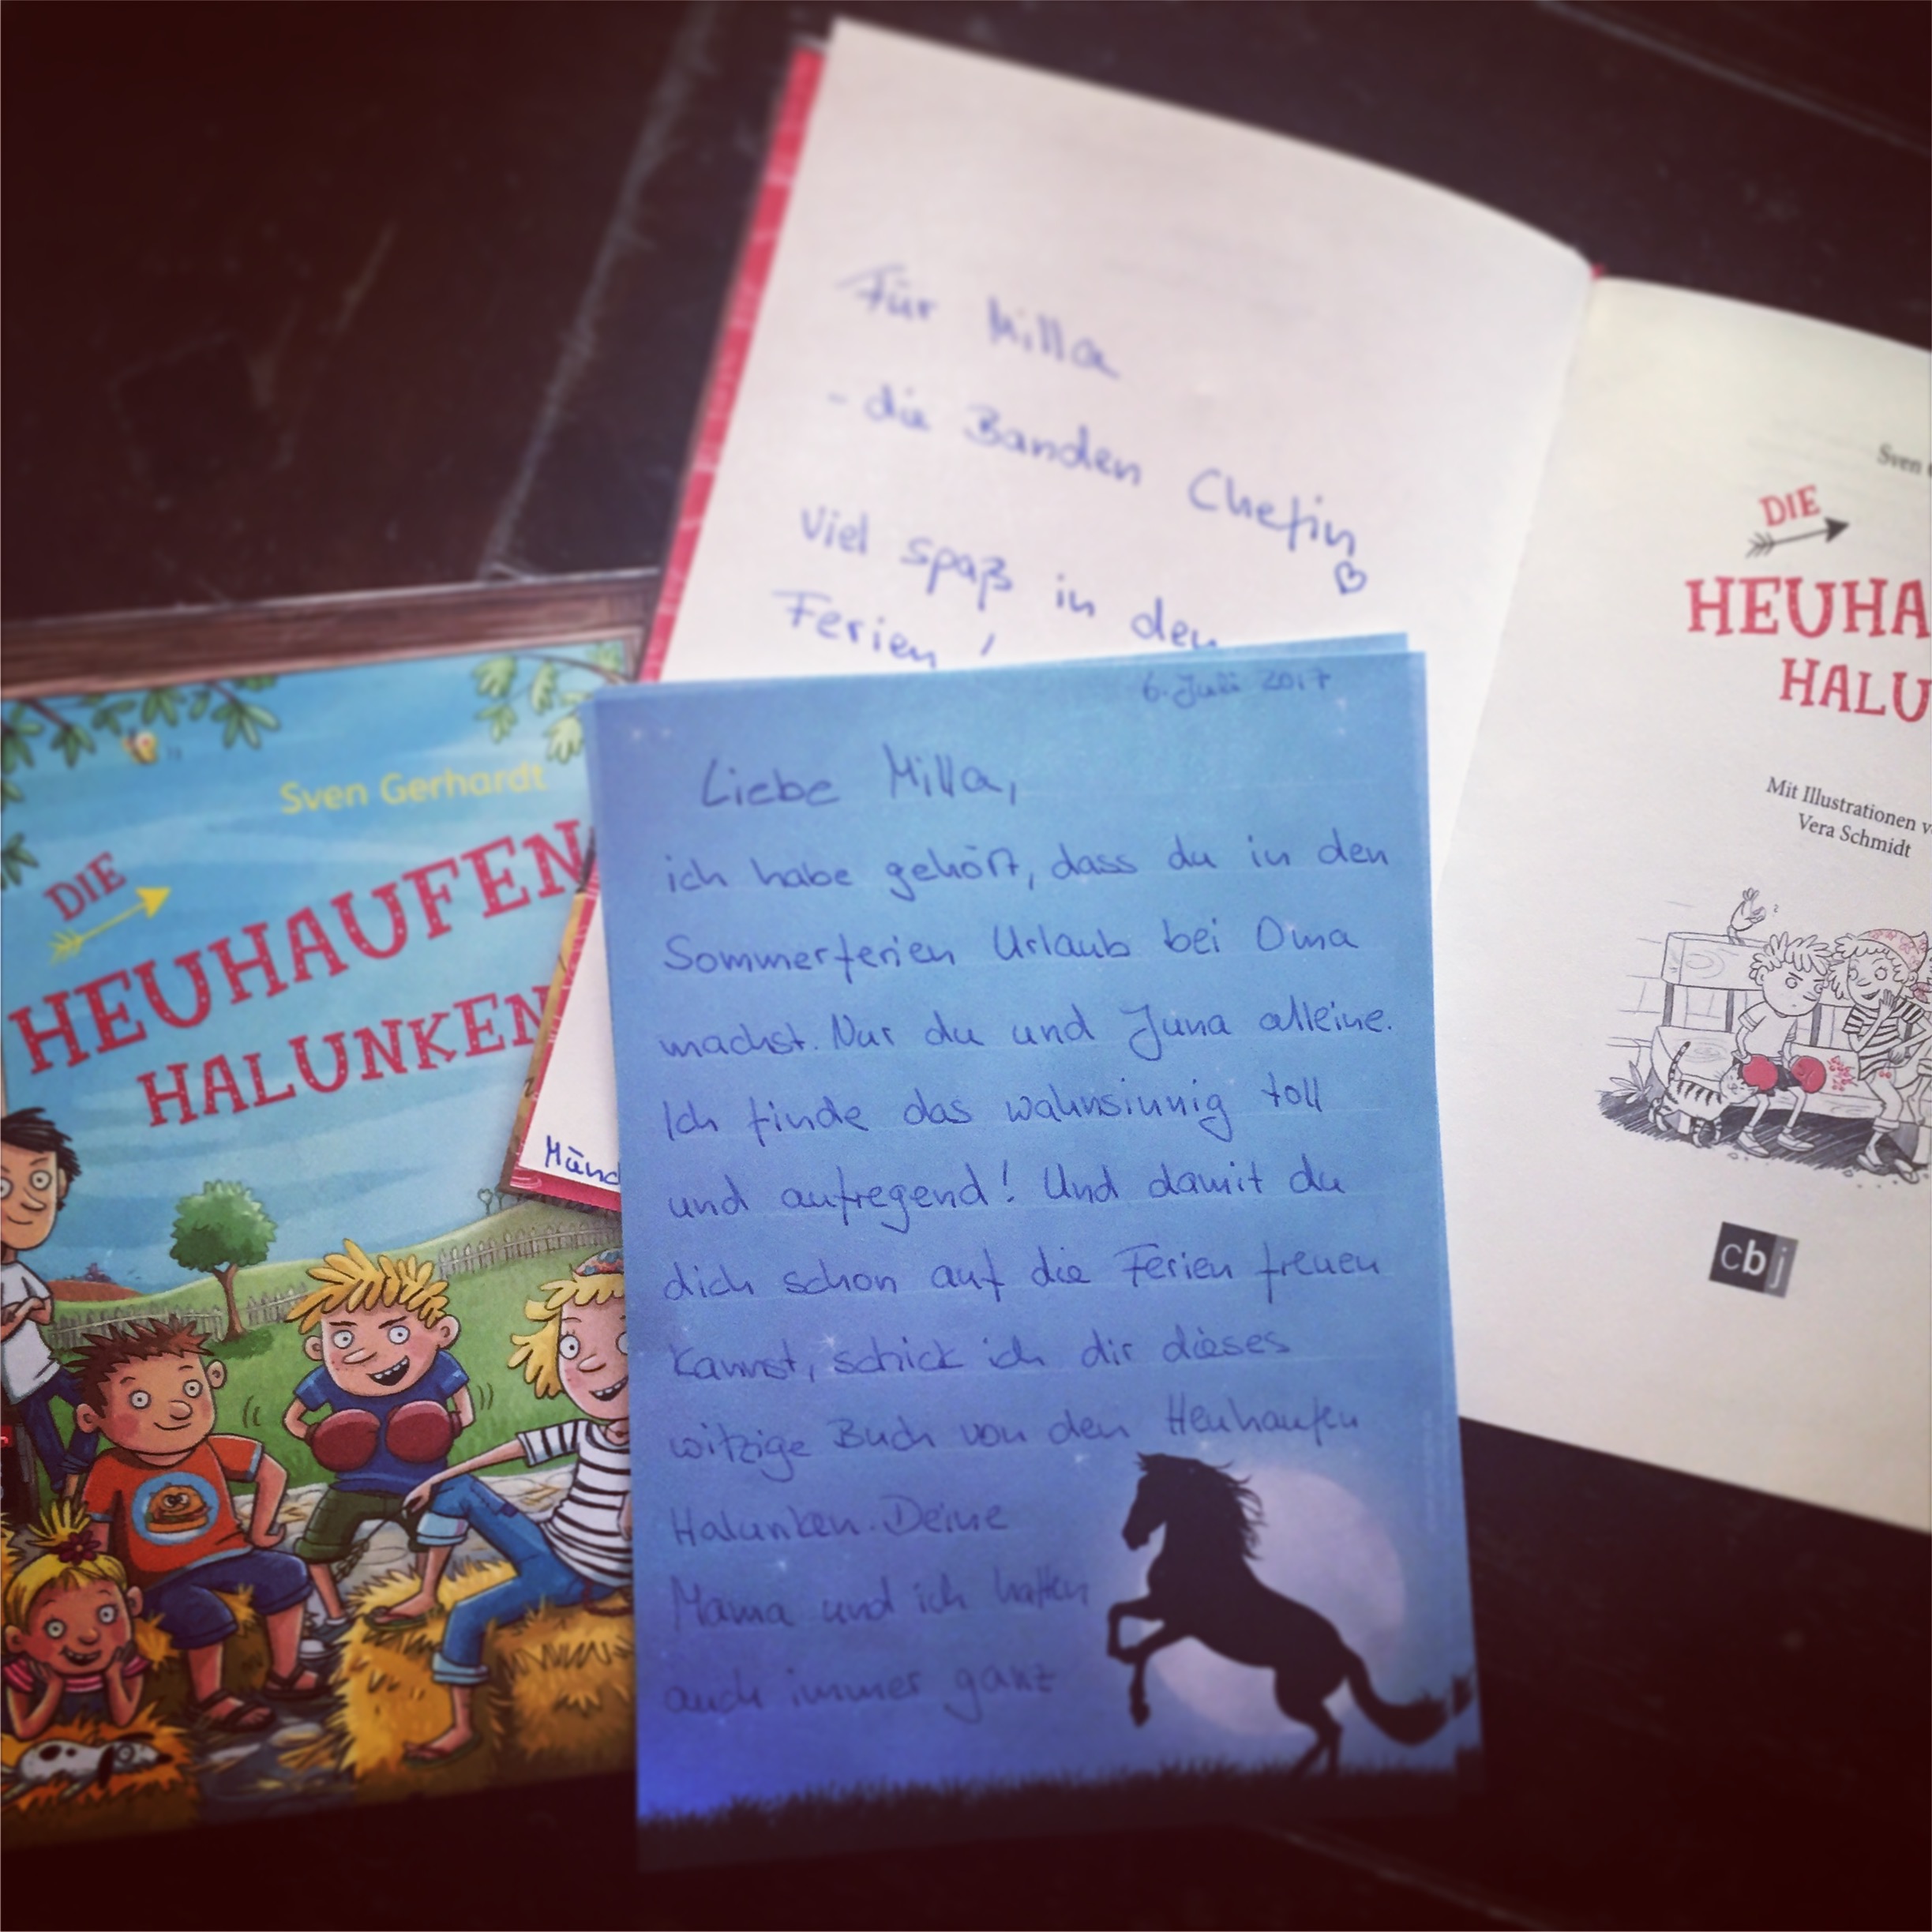 Für Milla
- die Banden Chefin
viel spaß in den
Ferien!
Sven
DIE
HEUHA
HALU
Mit Illustrationen v
Vera Schmidt
cbj
Sven Gerhardt
DIE
HEUHAUFEN
HALUNKEN
Münc
6. Juli 2017
Liebe Milla,
ich habe gehört, dass du in den
Sommerferien Urlaub bei Oma
machst. Nur du und Juna alleine.
Ich finde das wahnsinnig toll
und aufregend! Und damit du
dich schon auf die Ferien freuen
kannst, schick ich dir dieses
witzige Buch von den Heuhaufen
Halunken. Deine
Mama und ich hatten
auch immer ganz